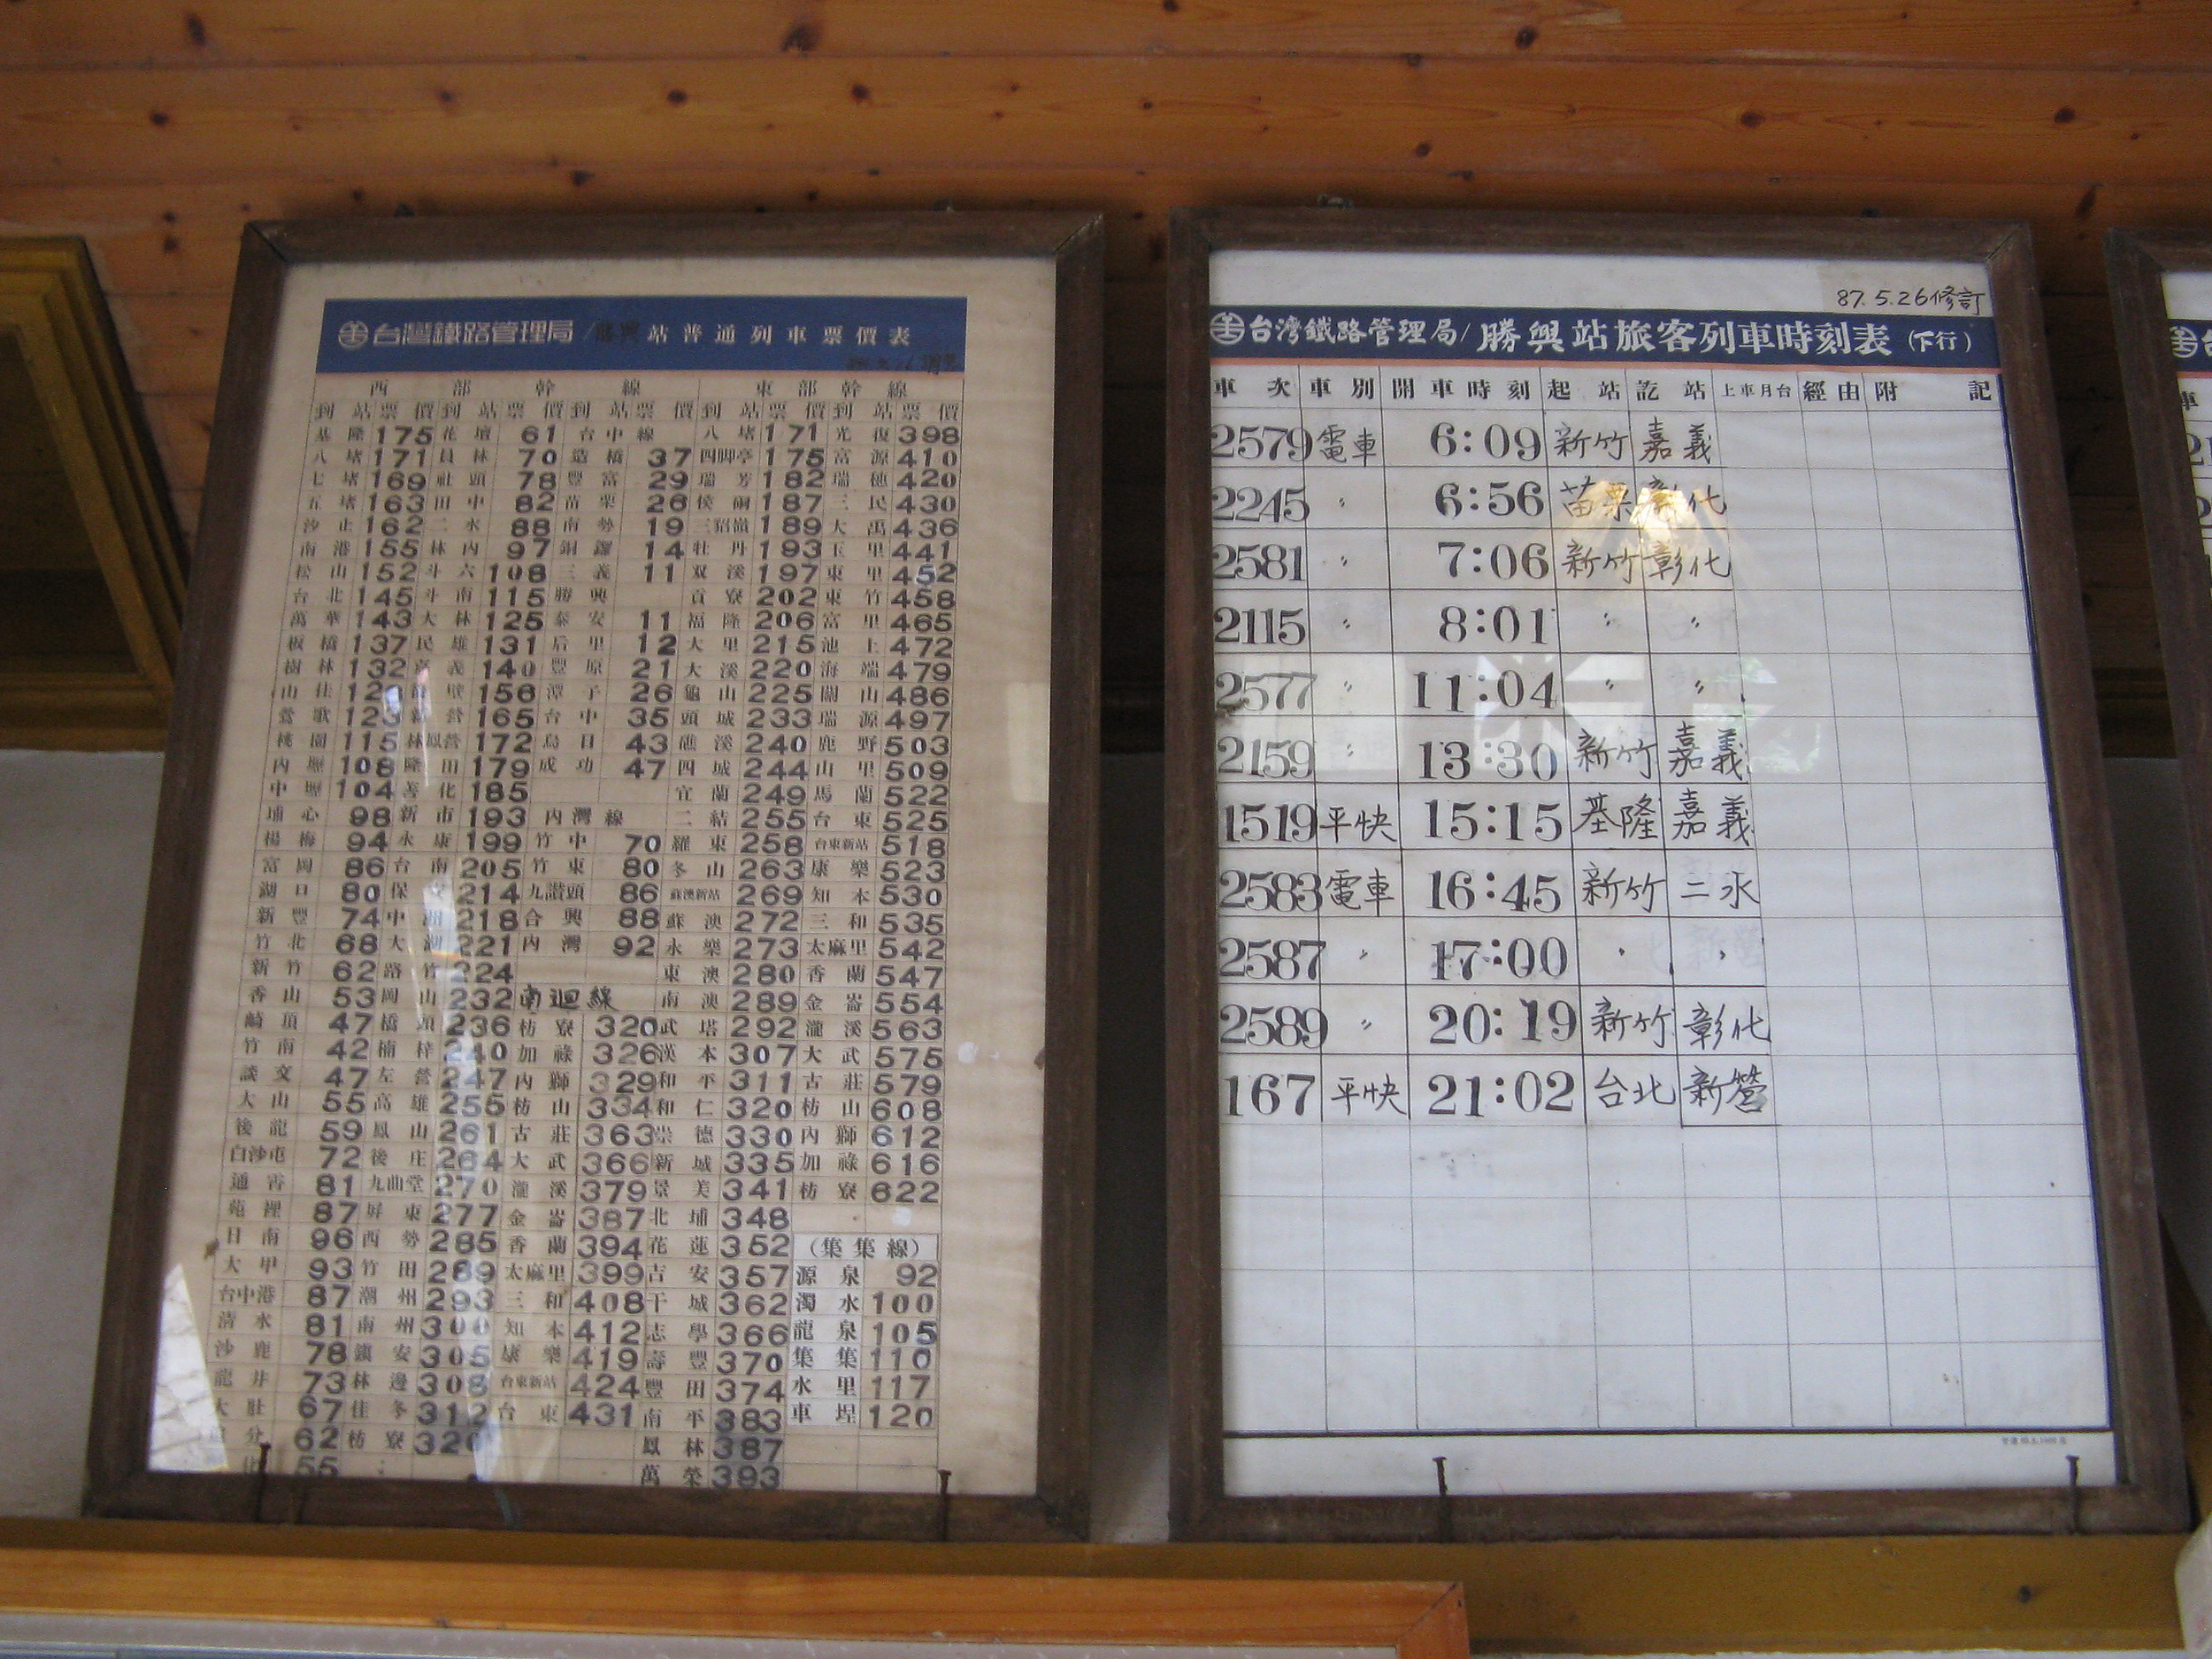 台灣鐵路管理局/勝興站普通列車票價表
西部幹線 東部幹線
到站 票價 到站 票價 到站 票價 到站 票價 到站 票價
基隆 175 花壇 61 台中線 八堵 171 光復 398
八堵 171 員林 70 造橋 37 四脚亭 175 富源 410
七堵 169 社頭 78 豐富 29 瑞芳 182 瑞穗 420
五堵 163 田中 82 苗栗 26 侯硐 187 三民 430
汐止 162 二水 88 南勢 19 三貂嶺 189 大禹 436
南港 155 林內 97 銅鑼 14 牡丹 193 玉里 441
松山 152 斗六 108 三義 11 双溪 197 東里 452
台北 145 斗南 115 勝興 貢寮 202 東竹 458
萬華 143 大林 125 泰安 11 福隆 206 富里 465
板橋 137 民雄 131 后里 12 大里 215 池上 472
樹林 132 嘉義 140 豐原 21 大溪 220 海端 479
山佳 156 潭子 26 龜山 225 關山 486
鶯歌 123 新營 165 台中 35 頭城 233 瑞源 497
桃園 115 林鳳營 172 烏日 43 礁溪 240 鹿野 503
內壢 108 隆田 179 成功 47 四城 244 山里 509
中壢 104 善化 185 宜蘭 249 馬蘭 522
埔心 98 新市 193 內灣線 二結 255 台東 525
楊梅 94 永康 199 竹中 70 羅東 258 台東新站 518
富岡 86 台南 205 竹東 80 冬山 263 康樂 523
湖口 80 保安 214 九讚頭 86 蘇澳新站 269 知本 530
新豐 74 中洲 218 合興 88 蘇澳 272 三和 535
竹北 68 大湖 221 內灣 92 永樂 273 太麻里 542
新竹 62 路竹 224 東澳 280 香蘭 547
香山 53 岡山 232 南迴線 南澳 289 金崙 554
崎頂 47 橋頭 236 枋寮 320 武塔 292 瀧溪 563
竹南 42 楠梓 240 加祿 326 漢本 307 大武 575
談文 47 左營 247 內獅 329 和平 311 古莊 579
大山 55 高雄 255 枋山 334 和仁 320 枋山 608
後龍 59 鳳山 261 古莊 363 崇德 330 內獅 612
白沙屯 72 後庄 264 大武 366 新城 335 加祿 616
通霄 81 九曲堂 270 瀧溪 379 景美 341 枋寮 622
苑裡 87 屏東 277 金崙 387 北埔 348
日南 96 西勢 285 香蘭 394 花蓮 352 (集集線)
大甲 93 竹田 289 太麻里 399 吉安 357 源泉 92
台中港 87 潮州 293 三和 408 干城 362 濁水 100
清水 81 南州 300 知本 412 志學 366 龍泉 105
沙鹿 78 鎮安 305 康樂 419 壽豐 370 集集 110
龍井 73 林邊 308 台東新站 424 豐田 374 水里 117
大肚 67 佳冬 312 台東 431 南平 383 車埕 120
62 枋寮 320 鳳林 387
55 萬榮 393
87.5.26修訂
台灣鐵路管理局/勝興站旅客列車時刻表(下行)
車次 車別 開車時刻 起站 訖站 上車月台 經由 附記
2579 電車 6:09 新竹 嘉義
2245 〃 6:56 苗栗 彰化
2581 〃 7:06 新竹 彰化
2115 〃 8:01 〃 〃
2577 〃 11:04 〃 〃
2159 〃 13:30 新竹 嘉義
1519 平快 15:15 基隆 嘉義
2583 電車 16:45 新竹 二水
2587 〃 17:00 〃 〃
2589 〃 20:19 新竹 彰化
167 平快 21:02 台北 新營